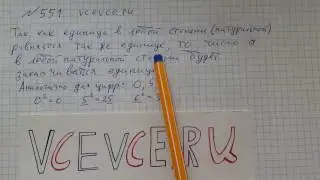 № 551 vcevce.ru
Так как единица в любой степени (натуральной)
равняется так же единице, то число а
в любой натуральной степени будет
заканчивается единицей
Аналогично для цифр: 0, 5
0² = 0 5² = 25 6² = 3
VCEVCE.RU